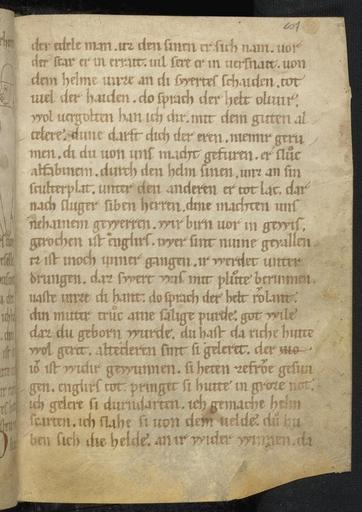 der edele man. uz den sinen er sich nam. vor
der star er in errait. vil sere er in versnait. von
dem helme unze an di swertes schaiden. tot
viel der haiden. do sprach der helt oliuir.
wol uergolten han ich dir. mit dem guten al
tecere. dune darft dich der eren. niemir geru
men. di du von uns macht gefuren. er sluc
alfabinem. durch den helm sinen. unz an sin
sculterplat. unter den anderen er tot lac. dar
nach sluger siben herren. dine machten uns
nehainem gewerren. wir birn vor in gewis.
gerochen ist engliris. swer sint nu ime geuallen
er ist inoch umner gangen. ir werdet unter
drungen. daz swert was mit plute berunnen.
uaste unze di hant. do sprach der helt rolant.
din muter truc aine salige purde. got wile
daz du geborn wurde. du hast da riche hutte
wol gerit. altecleren sint si geleret. der
ist widir gewunnen. si heten ze froe gesun
gen. englirs tot. pringet si hiute in groze not.
ich gelere si durndarten. ich gemache helm
scarten. ich slahe si von dem uelde. du hu
ben sich die helde. an ir wider winnen. da